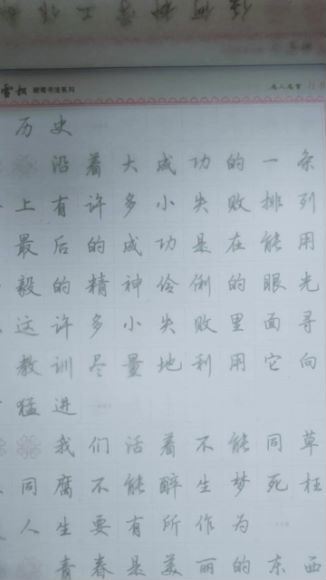 雪松 硬笔书法系列
名人名言
历史
沿着大成功的一条
上有许多小失败排列
最后的成功是在能用
毅的精神伶俐的眼光
这许多小失败里面寻
教训尽量地利用它向
猛进
我们活着不能同草
同腐不能醉生梦死枉
人生要有所作为
青春是美丽的东西